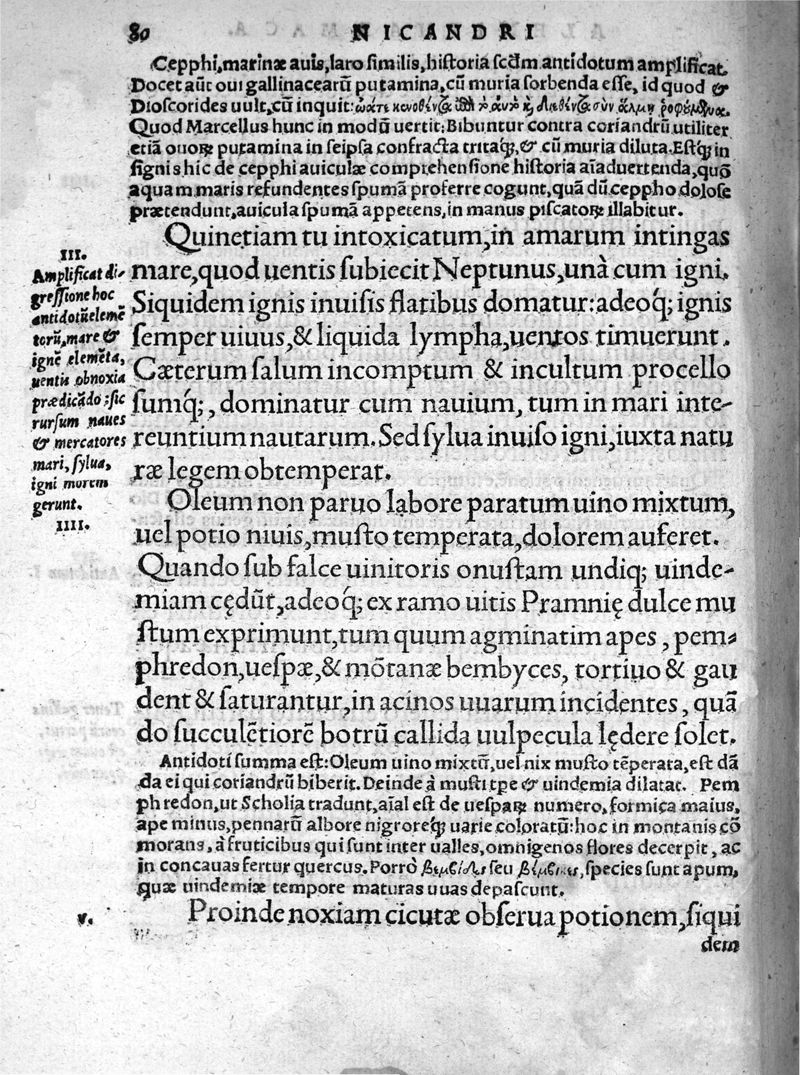 80 NICANDRI
Cepphi, marinæ auis, laro similis, historia scđm antidotum amplificat.
Docet aūt oui gallinacearū putamina, cū muria sorbenda esse, id quod &
Dioscorides uult, cū inquit:
Quod Marcellus hunc in modū uertit: Bibuntur contra coriandrū utiliter
etiā ouoꝝ putamina in seipsa confracta tritaq́;, & cū muria diluta. Estq́; in
signis hic de cepphi auiculæ comprehensione historia aīaduertenda, quō
aquam maris refundentes spumā proferre cogunt, quā dū ceppho dolose
prætendunt, auicula spumā appetens, in manus piscatoꝝ illabitur.
Quinetiam tu intoxicatum, in amarum intingas
mare, quod uentis subiecit Neptunus, unà cum igni.
Siquidem ignis inuisis flatibus domatur: adeoq́; ignis
semper uiuus, & liquida lympha, uentos timuerunt.
Cæterum salum incomptum & incultum procello
sumq́;, dominatur cum nauium, tum in mari inte-
reuntium nautarum. Sed sylua inuiso igni, iuxta natu
ræ legem obtemperat.
III.
Amplificat di-
gressione hoc
antidotū elemē
torū, mare &
ignē elemēta,
uentis obnoxia
prædicādo; sic
rursum naues
& mercatores
mari, sylua,
igni morem
gerunt.
IIII.
Oleum non paruo labore paratum uino mixtum,
uel potio niuis, musto temperata, dolorem auferet.
Quando sub falce uinitoris onustam undiq; uinde-
miam cędūt, adeoq́; ex ramo uitis Pramnię dulce mu
stum exprimunt, tum quum agminatim apes, pem-
phredon, uespæ, & mōtanæ bembyces, tortiuo & gau
dent & saturantur, in acinos uuarum incidentes, quā
do succulētiorē botrū callida uulpecula lędere solet.
Antidoti summa est: Oleum uino mixtū, uel nix musto tēperata, est dā
da ei qui coriandrū biberit. Deinde à musti tpe & uindemia dilatat. Pem
phredon, ut Scholia tradunt, aīal est de uespaꝝ numero, formica maius,
ape minus, pennarū albore nigroreq́; uarie coloratū: hoc in montanis cō
morans, à fruticibus qui sunt inter ualles, omnigenos flores decerpit, ac
in concauas fertur quercus. Porrò seu species sunt apum,
quæ uindemiæ tempore maturas uuas depascunt.
v.
Proinde noxiam cicutæ obserua potionem, siqui
dem